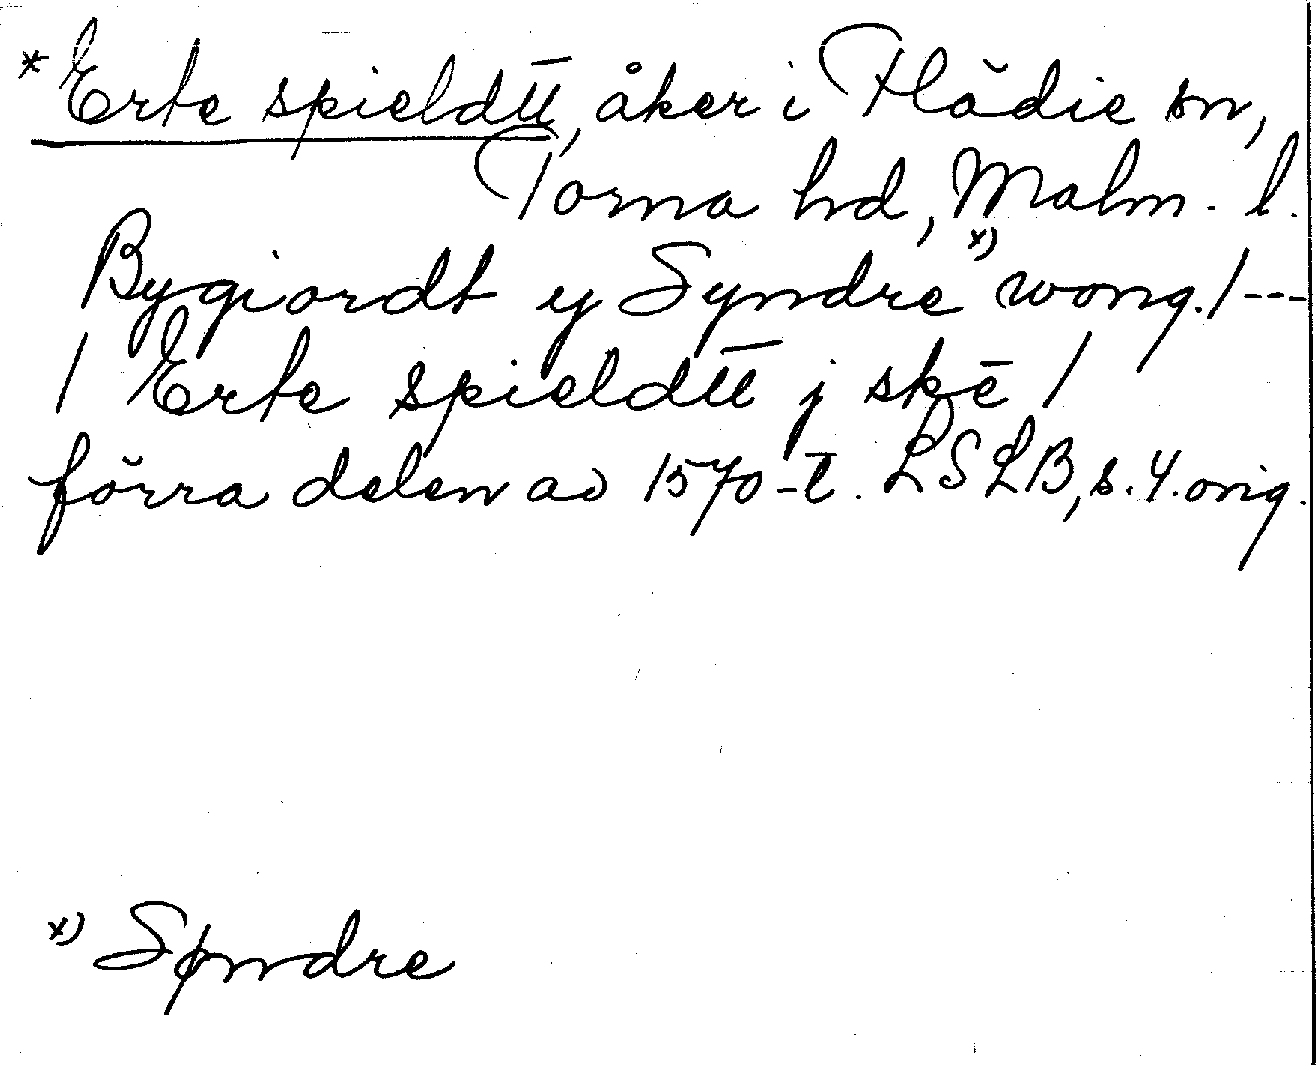 *Erte spieldtt̄, åker i Flädie sn,
Torna hd, Malm. l.
Bygiordt y Syndre x) wong./---
/ Erte spieldtt̄ j skē /
förra delen av 1570-t. LSLB, s. 4. orig.
x) Søndre